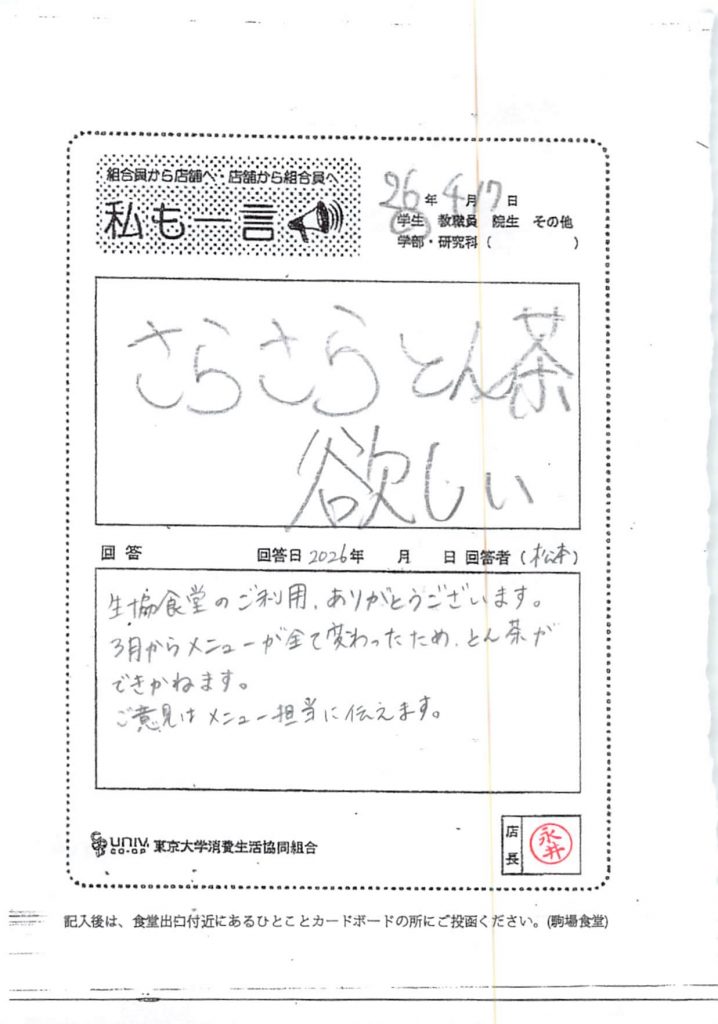 組合員から店舗へ・店舗から組合員へ
私も一言
26年4月17日
学生 教職員 院生 その他
学部・研究科( )
さらさらとん茶
欲しい
回答 回答日2026年 月 日 回答者(松本)
生協食堂のご利用、ありがとうございます。
3月からメニューが全て変わったため、とん茶が
できかねます。
ご意見はメニュー担当に伝えます。
UNIV. CO-OP 東京大学消費生活協同組合
店長 永井
記入後は、食堂出口付近にあるひとことカードボードの所にご投函ください。(駒場食堂)